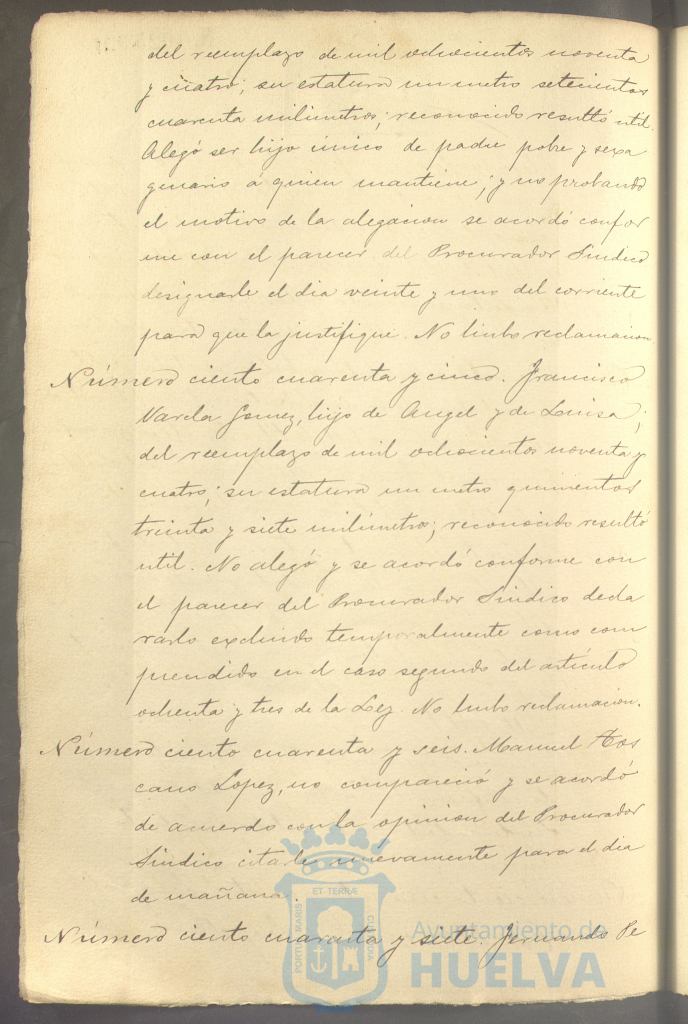 del reemplazo de mil ochocientos noventa
y cuatro; su estatura un metro setecientos
cuarenta milimetros; reconocido resultó util.
Alegó ser hijo único de padre pobre y sexa
genario á quien mantiene; y no probando
el motivo de la alegacion se acordó confor
me con el parecer del Procurador Sindico
designarle el dia veinte y uno del corriente
para que la justifique. No hubo reclamacion
Número ciento cuarenta y cinco. Francisco
Varela Gomez, hijo de Angel y de Luisa;
del reemplazo de mil ochocientos noventa y
cuatro; su estatura un metro quinientos
treinta y siete milimetros; reconocido resultó
util. No alegó y se acordó conforme con
el parecer del Procurador Sindico decla
rarlo excluido temporalmente como com
prendido en el caso segundo del artículo
ochenta y tres de la Ley. No hubo reclamacion.
Número ciento cuarenta y seis. Manuel Tos
cano Lopez, no compareció y se acordó
de acuerdo con la opinion del Procurador
Sindico citarle nuevamente para el dia
de mañana.
Número ciento cuarenta y siete. Fernando Pe
PORTUS MARIS ET TERRÆ CUSTODIA
Ayuntamiento de
HUELVA